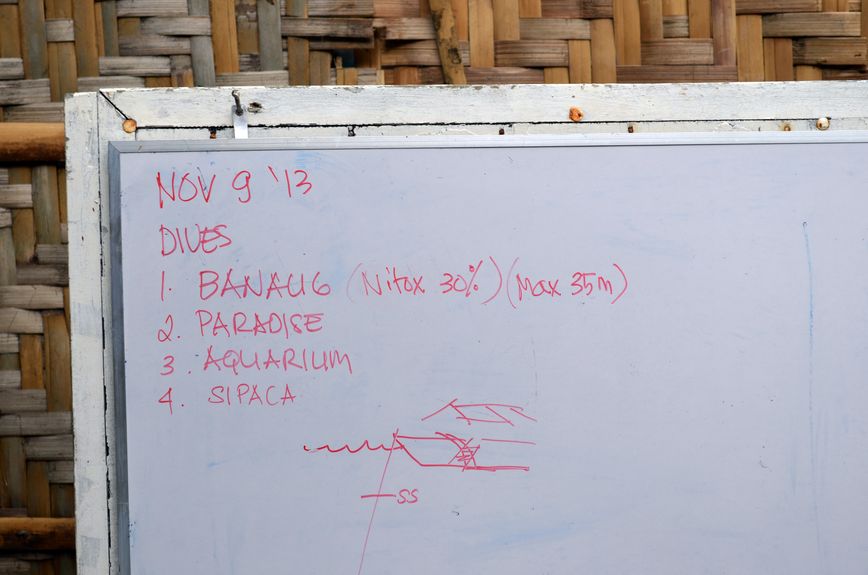 NOV 9 '13
DIVES
1. BANAUG (Nitox 30%) (Max 35m)
2. PARADISE
3. AQUARIUM
4. SIPACA
SS